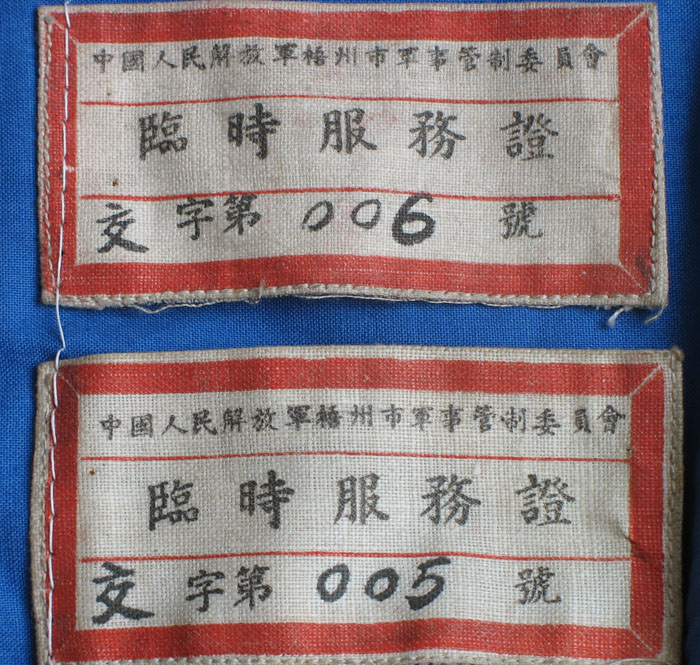 中國人民解放軍梧州市軍事管制委員會
臨時服務證
交字第006號
中國人民解放軍梧州市軍事管制委員會
臨時服務證
交字第005號